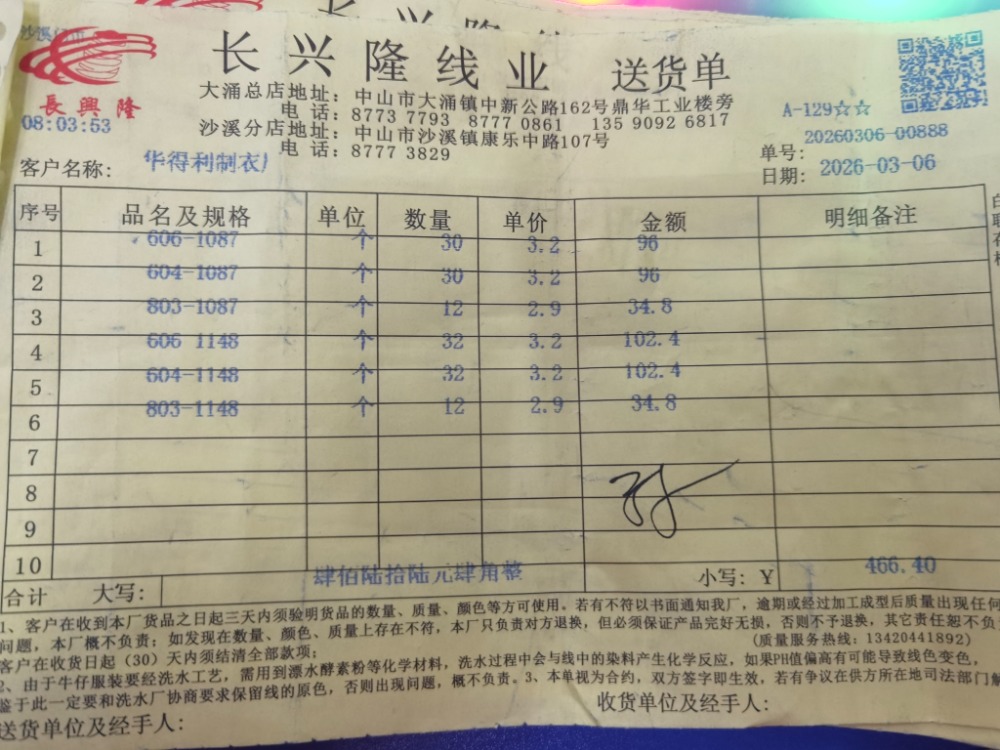 長興隆
08:03:53
长兴隆线业 送货单
大涌总店地址：中山市大涌镇中新公路162号鼎华工业楼旁
电 话：8773 7793 8777 0861 135 9092 6817
沙溪分店地址：中山市沙溪镇康乐中路107号
电 话：8777 3829
A-129☆☆
单号：20260306-00888
日期：2026-03-06
客户名称：华得利制衣厂
序号 品名及规格 单位 数量 单价 金额 明细备注
1 606-1087 个 30 3.2 96
2 604-1087 个 30 3.2 96
3 803-1087 个 12 2.9 34.8
4 606 1148 个 32 3.2 102.4
5 604-1148 个 32 3.2 102.4
6 803-1148 个 12 2.9 34.8
7
8
9
10
合计 大写：肆佰陆拾陆元肆角整 小写：Y 466.40
1、客户在收到本厂货品之日起三天内须验明货品的数量、质量、颜色等方可使用。若有不符以书面通知我厂，逾期或经过加工成型后质量出现任何
问题，本厂概不负责；如发现在数量、颜色、质量上存在不符，本厂只负责对方退换，但必须保证产品完好无损，否则不予退换，其它责任恕不负
(质量服务热线：13420441892)
客户在收货日起（30）天内须结清全部款项；
2、由于牛仔服装要经洗水工艺，需用到漂水酵素粉等化学材料，洗水过程中会与线中的染料产生化学反应，如果PH值偏高有可能导致线色变色，
鉴于此一定要和洗水厂协商要求保留线的原色，否则出现问题，概不负责。3、本单视为合约，双方签字即生效，若有争议在供方所在地司法部门解
送货单位及经手人： 收货单位及经手人：